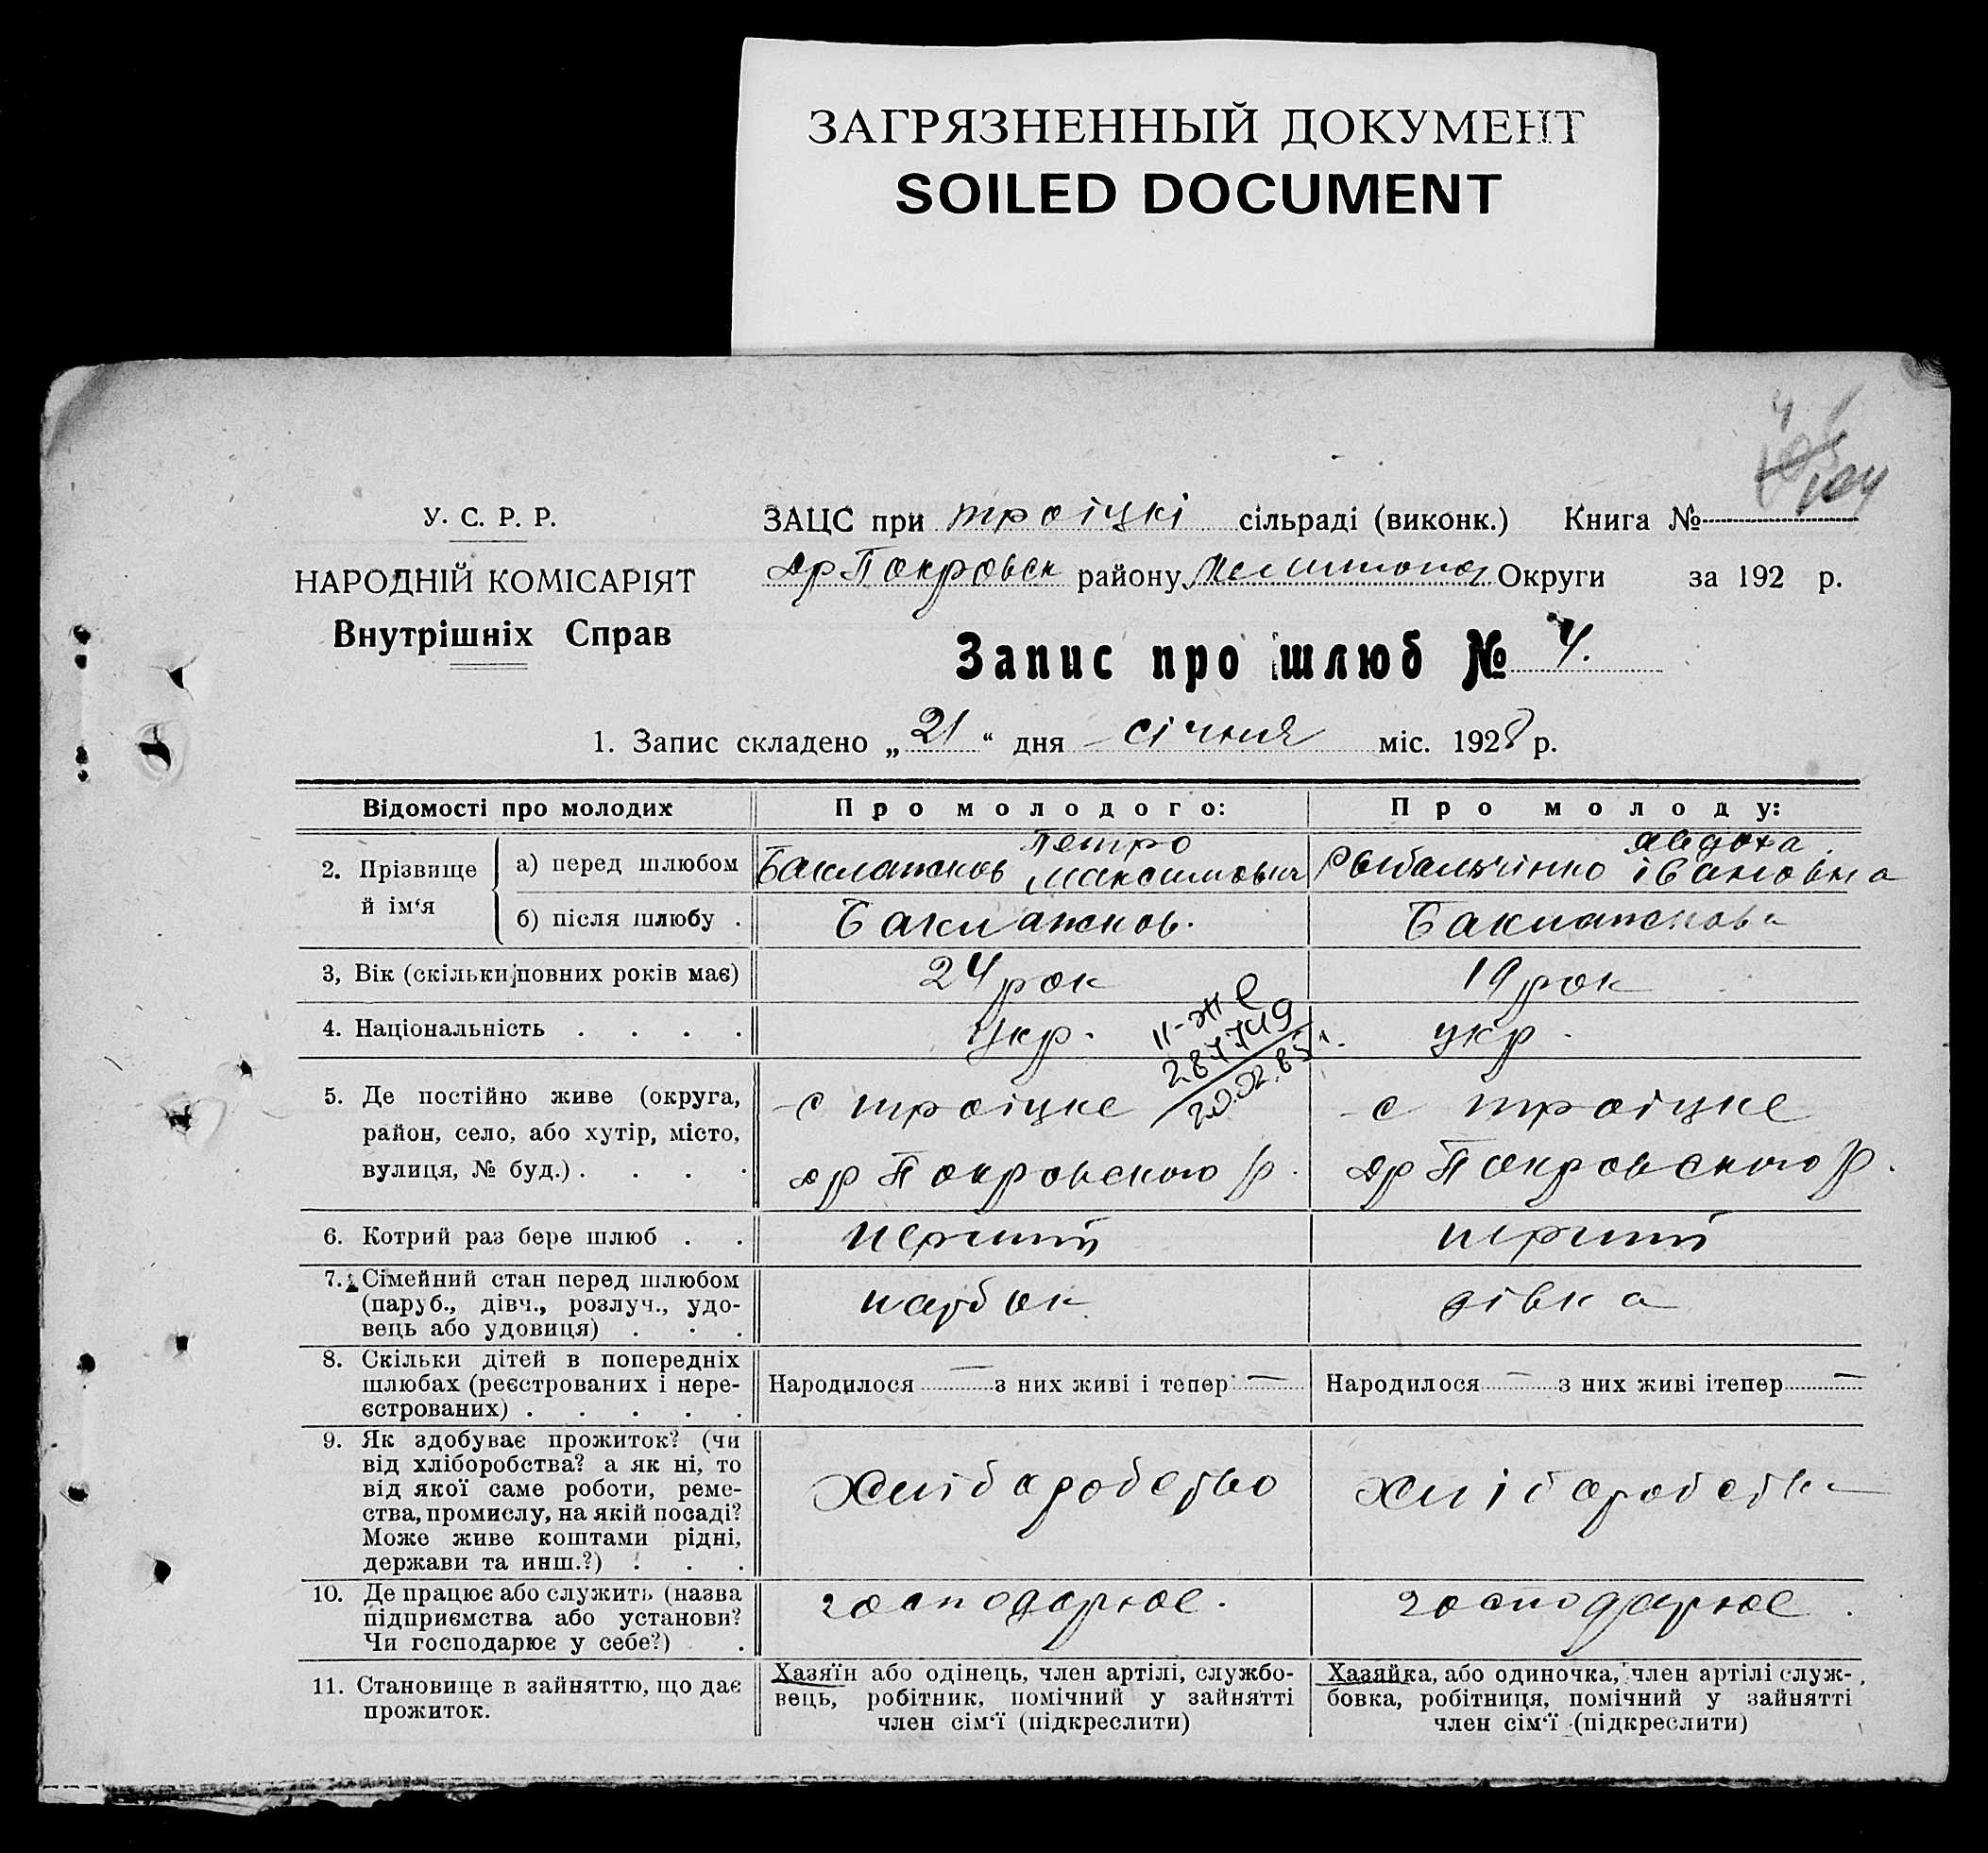 ЗАГРЯЗНЕННЫЙ ДОКУМЕНТ
SOILED DOCUMENT
104
У. С. Р. Р.
НАРОДНІЙ КОМІСАРІЯТ
Внутрішніх Справ
ЗАЦС при троіцкі сільраді (виконк.) Книга №
Др Покровск району Мелитопол Округи за 192 р.
Запис про шлюб № 4.
1. Запис складено „ 21 “ дня січня міс. 1928 р.
Відомості про молодих
Про молодого:
Про молоду:
2. Прізвище й ім‘я
а) перед шлюбом
Баклажков Петро Максимович
Рыбальчінко Авдоха івановна
б) після шлюбу .
Баклажков.
Баклажкова
3, Вік (скільки повних років має)
24 рок
19 рок
4. Національність . . . .
Укр.
укр.
II-ЖС
287749
20.02.85 г.
5. Де постійно живе (округа,
район, село, або хутір, місто,
вулиця, № буд.) . . . .
с троіцке
др Покровского р.
с троіцке
др Покровского р.
6. Котрий раз бере шлюб . .
перший
перший
7. Сімейний стан перед шлюбом
(паруб., дівч., розлуч., удо-
вець або удовиця) . . .
парбок
дівка
8. Скільки дітей в попередніх
шлюбах (реєстрованих і нере-
єстрованих) . . . . .
Народилося — з них живі і тепер —
Народилося — з них живі ітепер —
9. Як здобуває прожиток? (чи
від хліборобства? а як ні, то
від якої саме роботи, реме-
ства, промислу, на якій посаді?
Може живе коштами рідні,
держави та инш.?) . . .
Хлібаробство
Хлібаробства
10. Де працює або служить (назва
підприємства або установи?
Чи господарює у себе?) .
господарює.
господарює.
11. Становище в зайняттю, що дає
прожиток.
Хазяїн або одінець, член артілі, службо-
вець, робітник, помічний у зайнятті
член сім‘ї (підкреслити)
Хазяйка, або одиночка, член артілі служ-
бовка, робітниця, помічний у зайнятті
член сім‘ї (підкреслити)